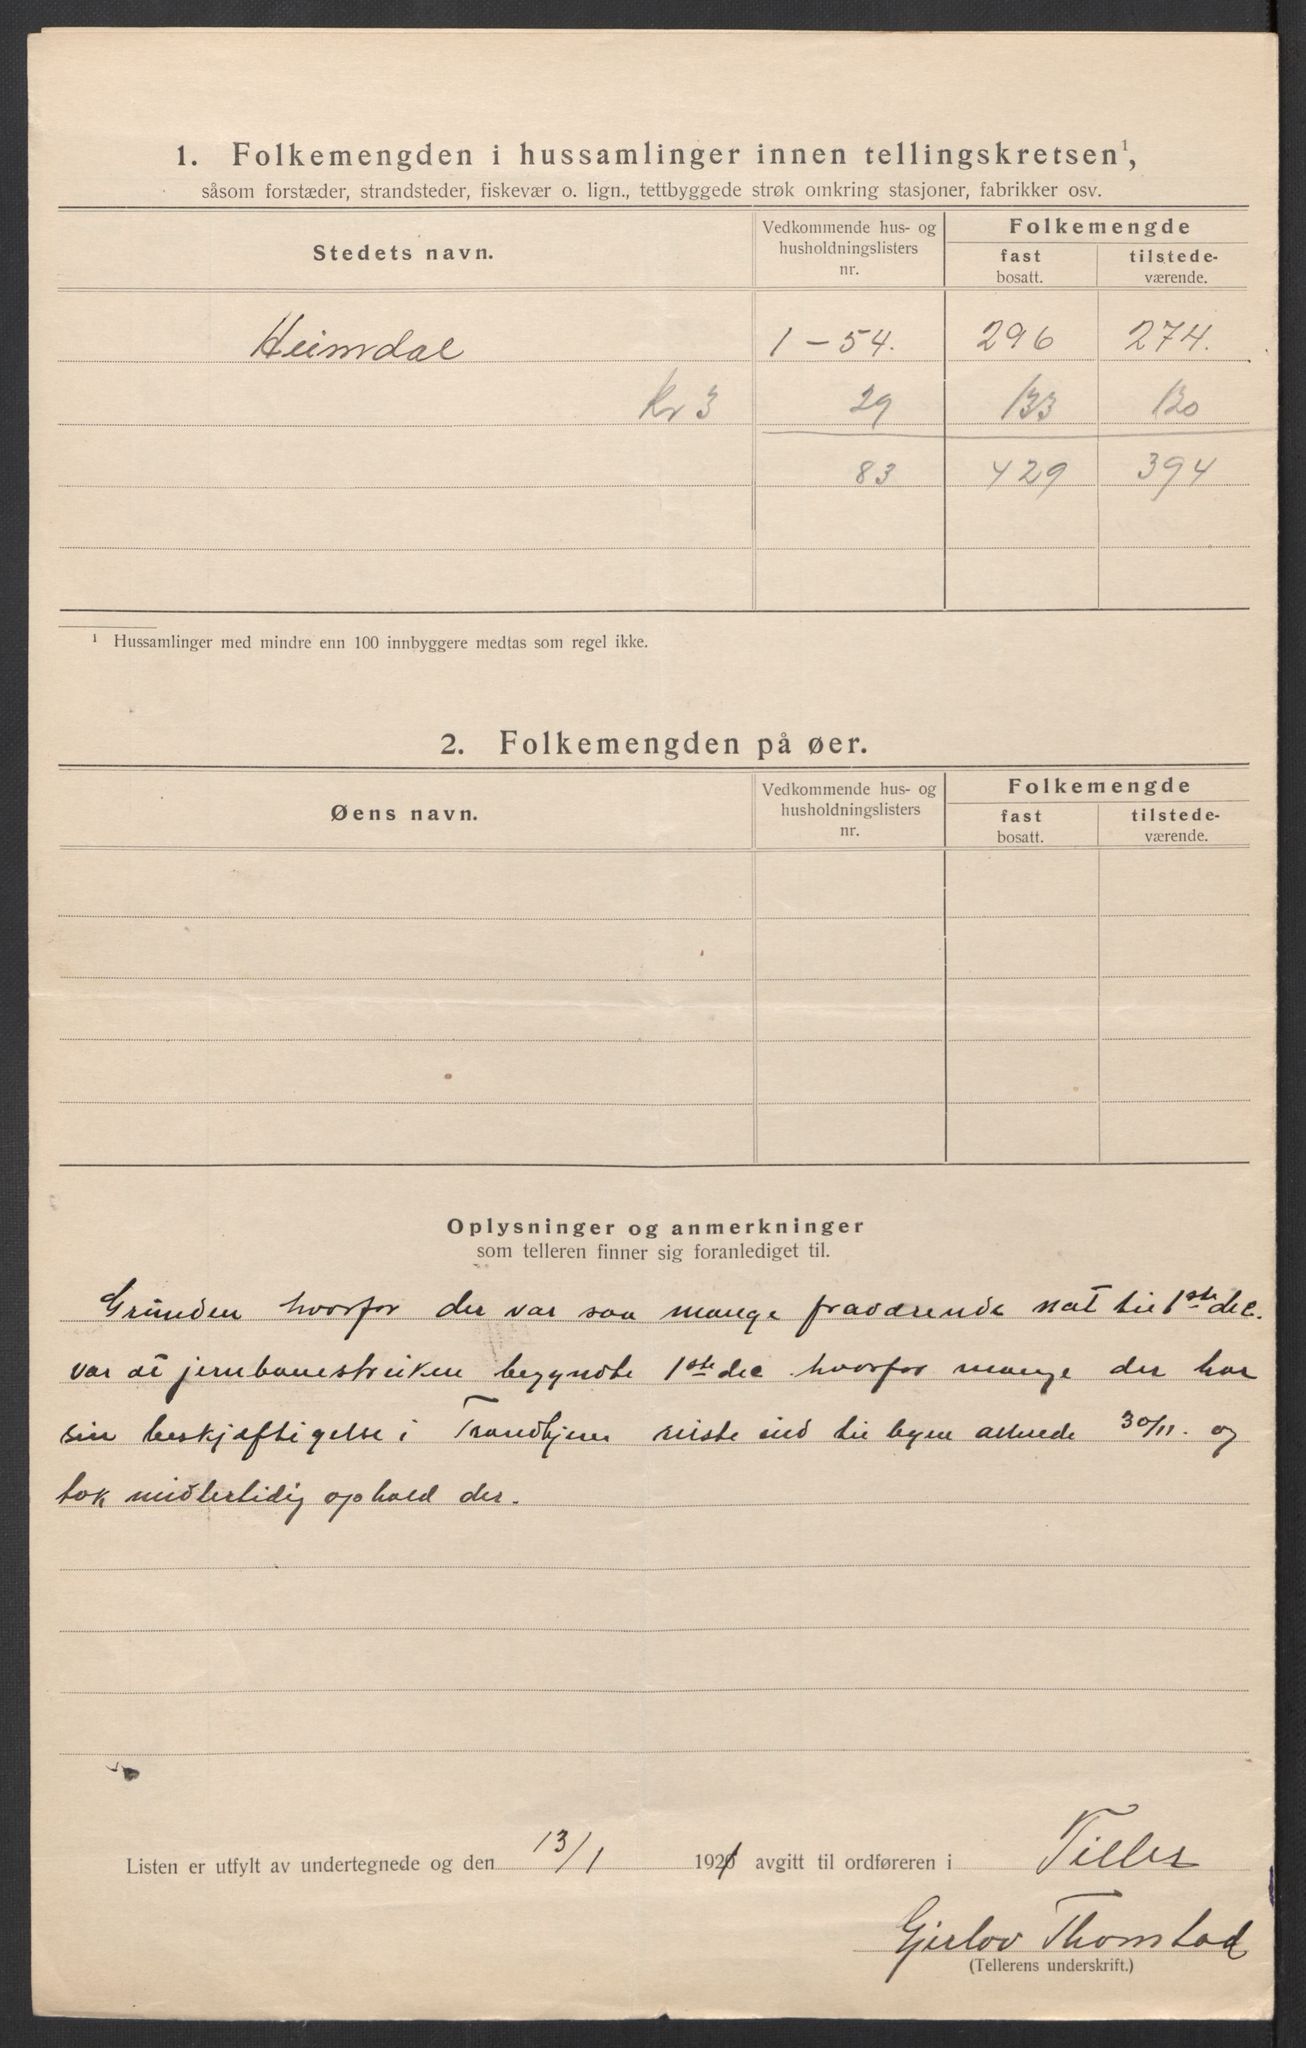 1. Folkemengden i hussamlinger innen tellingskretsen¹,
såsom forstæder, strandsteder, fiskevær o. lign., tettbyggede strøk omkring stasjoner, fabrikker osv.
Stedets navn.
Vedkommende hus- og
husholdningslisters
nr.
Folkemengde
fast
bosatt.
tilstede-
værende.
Heimdal 1 – 54. 296 274.
Kr 3 29 133 120
83 429 394
¹ Hussamlinger med mindre enn 100 innbyggere medtas som regel ikke.
2. Folkemengden på øer.
Øens navn.
Vedkommende hus- og
husholdningslisters
nr.
Folkemengde
fast
bosatt.
tilstede-
værende.
Oplysninger og anmerkninger
som telleren finner sig foranlediget til.
Grunden hvorfor der var saa mange fraværende nat til 1ste dec.
var at jernbanestreiken begyndte 1ste dec hvorfor mange der har
sin beskjæftigelse i Trondhjem reiste ind til byen allerede 30/11. og
tok midlertidig ophold der.
Listen er utfylt av undertegnede og den 13/1 1921 avgitt til ordføreren i Tiller
Gjerlov Thomstad
(Tellerens underskrift.)